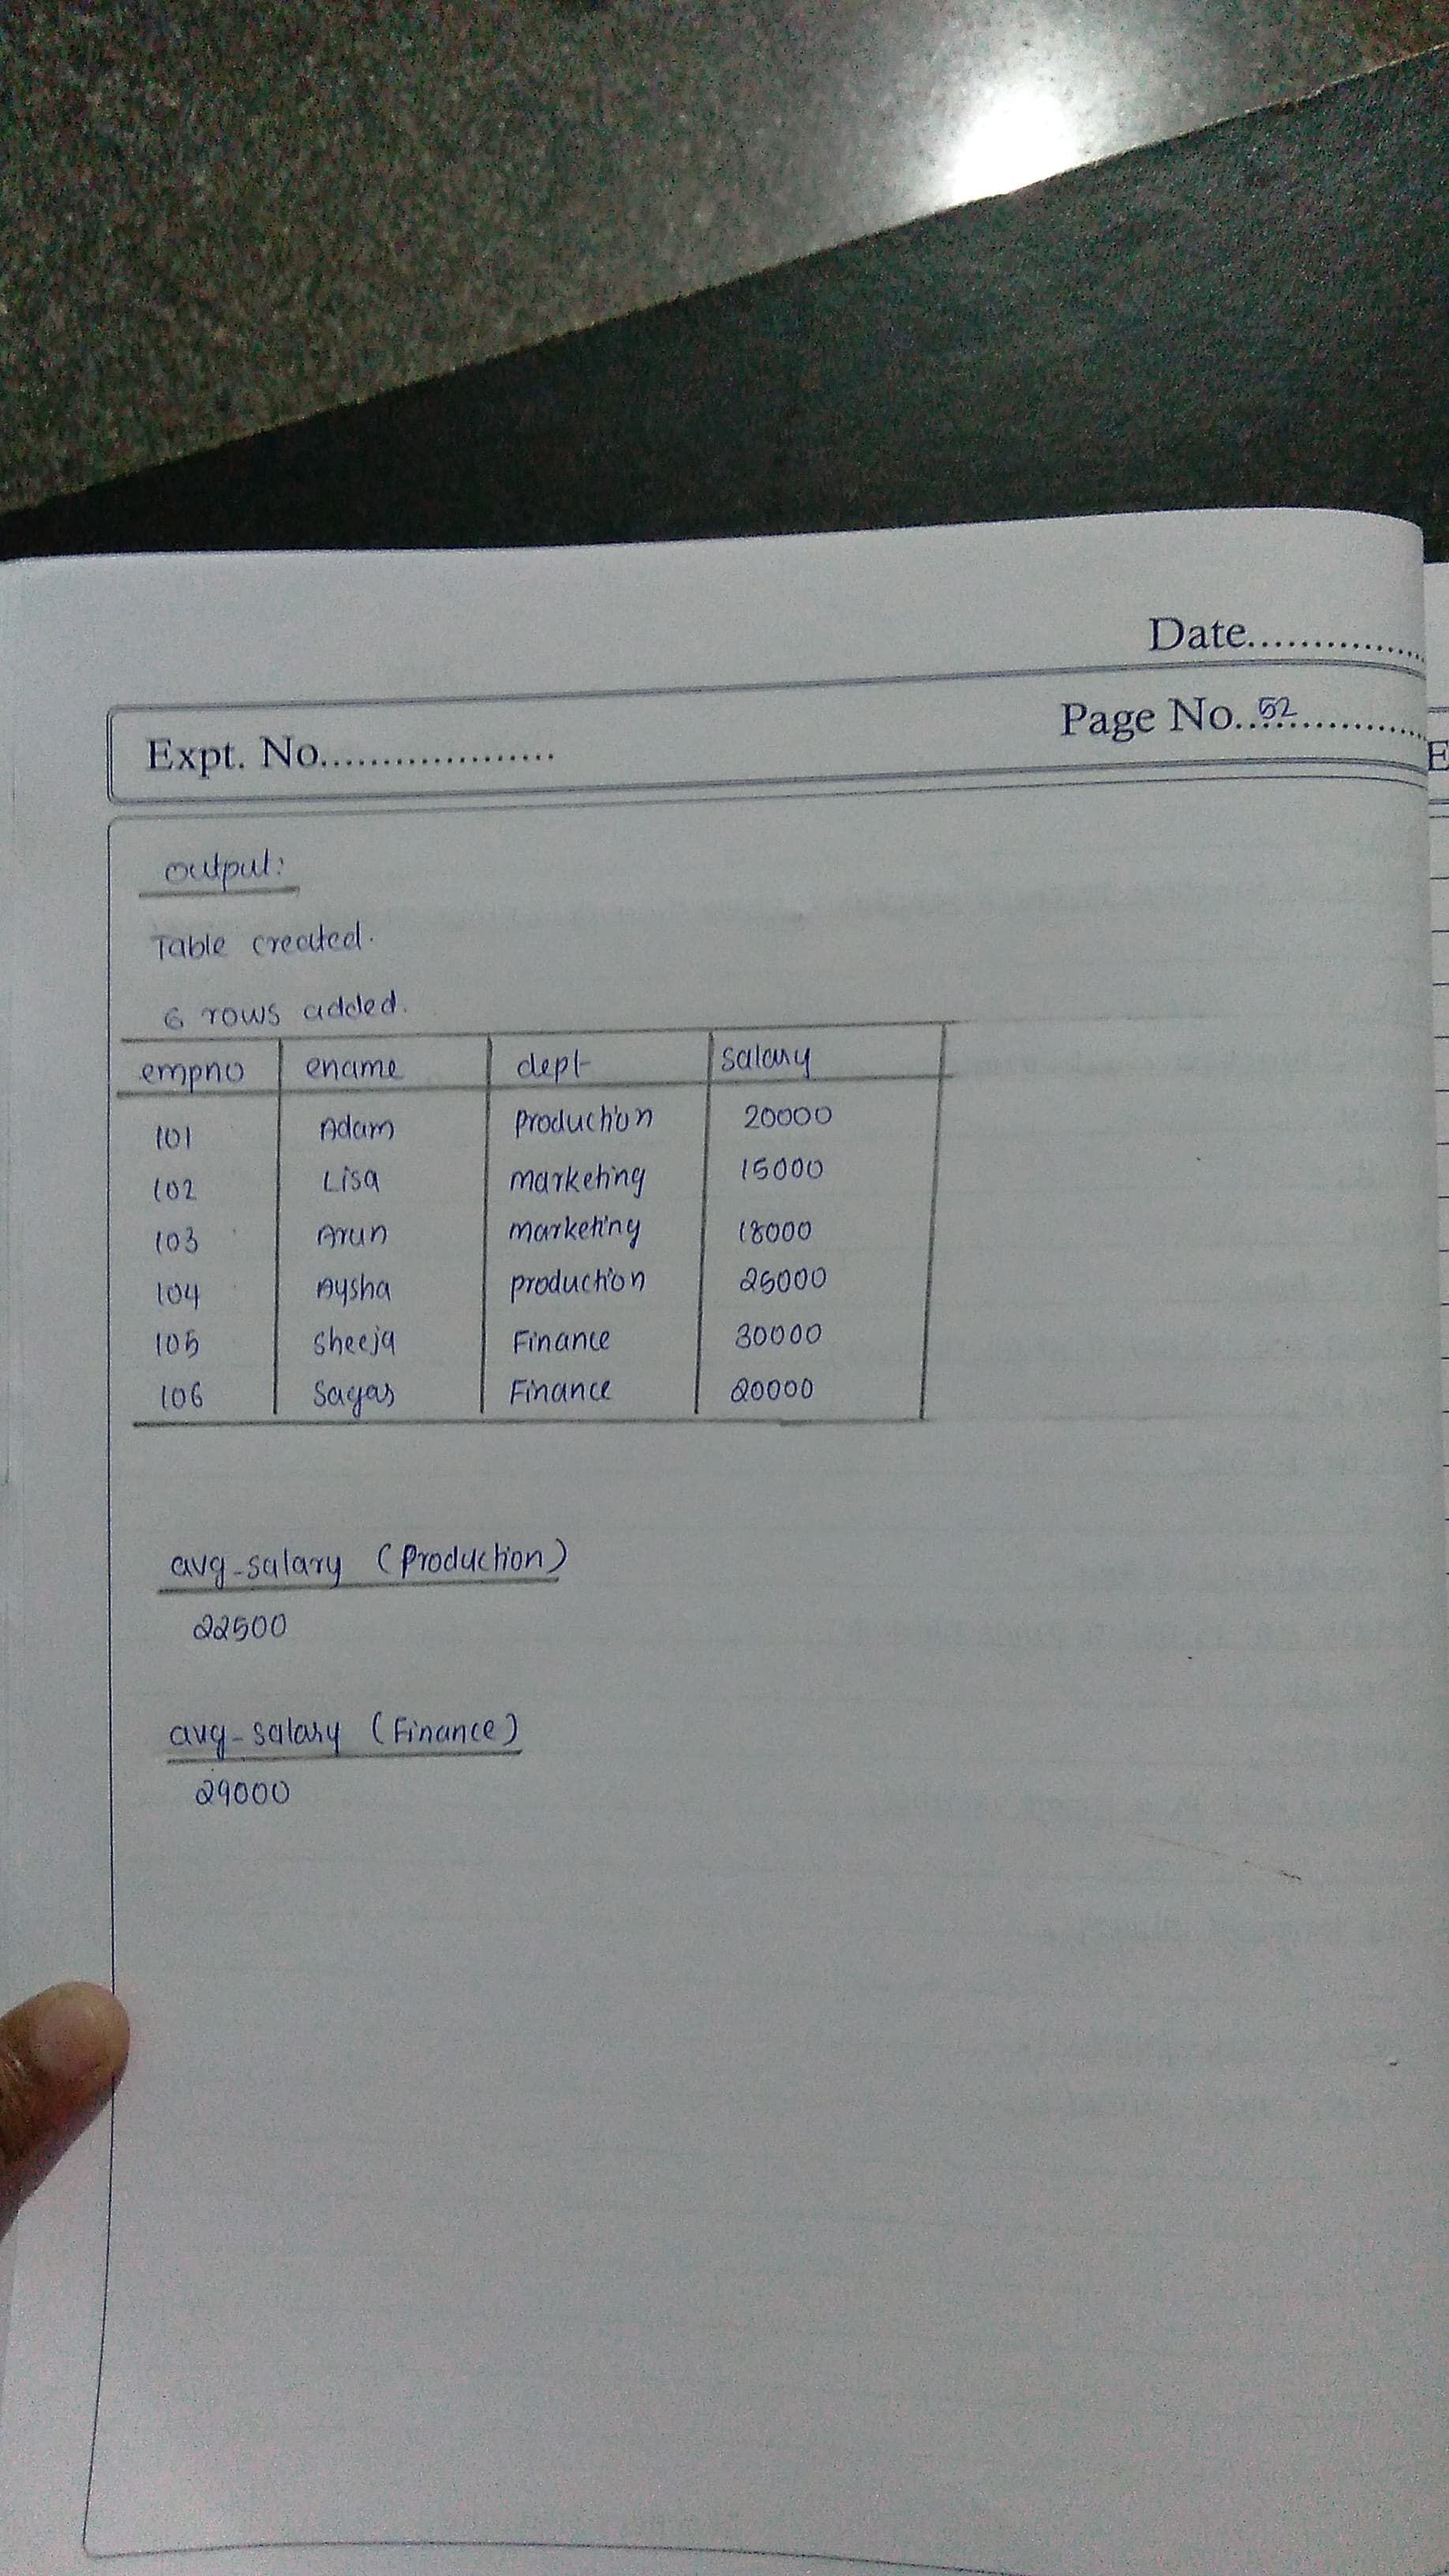 Date................
Page No...52..............
Expt. No...................
output:
Table created.
6 rows added.
empno ename dept salary
101 Adam Production 20000
102 Lisa marketing 15000
103 Arun marketing 18000
104 Aysha production 25000
105 Sheeja Finance 30000
106 Sagar Finance 20000
avg_salary (Production)
22500
avg_salary (Finance)
29000